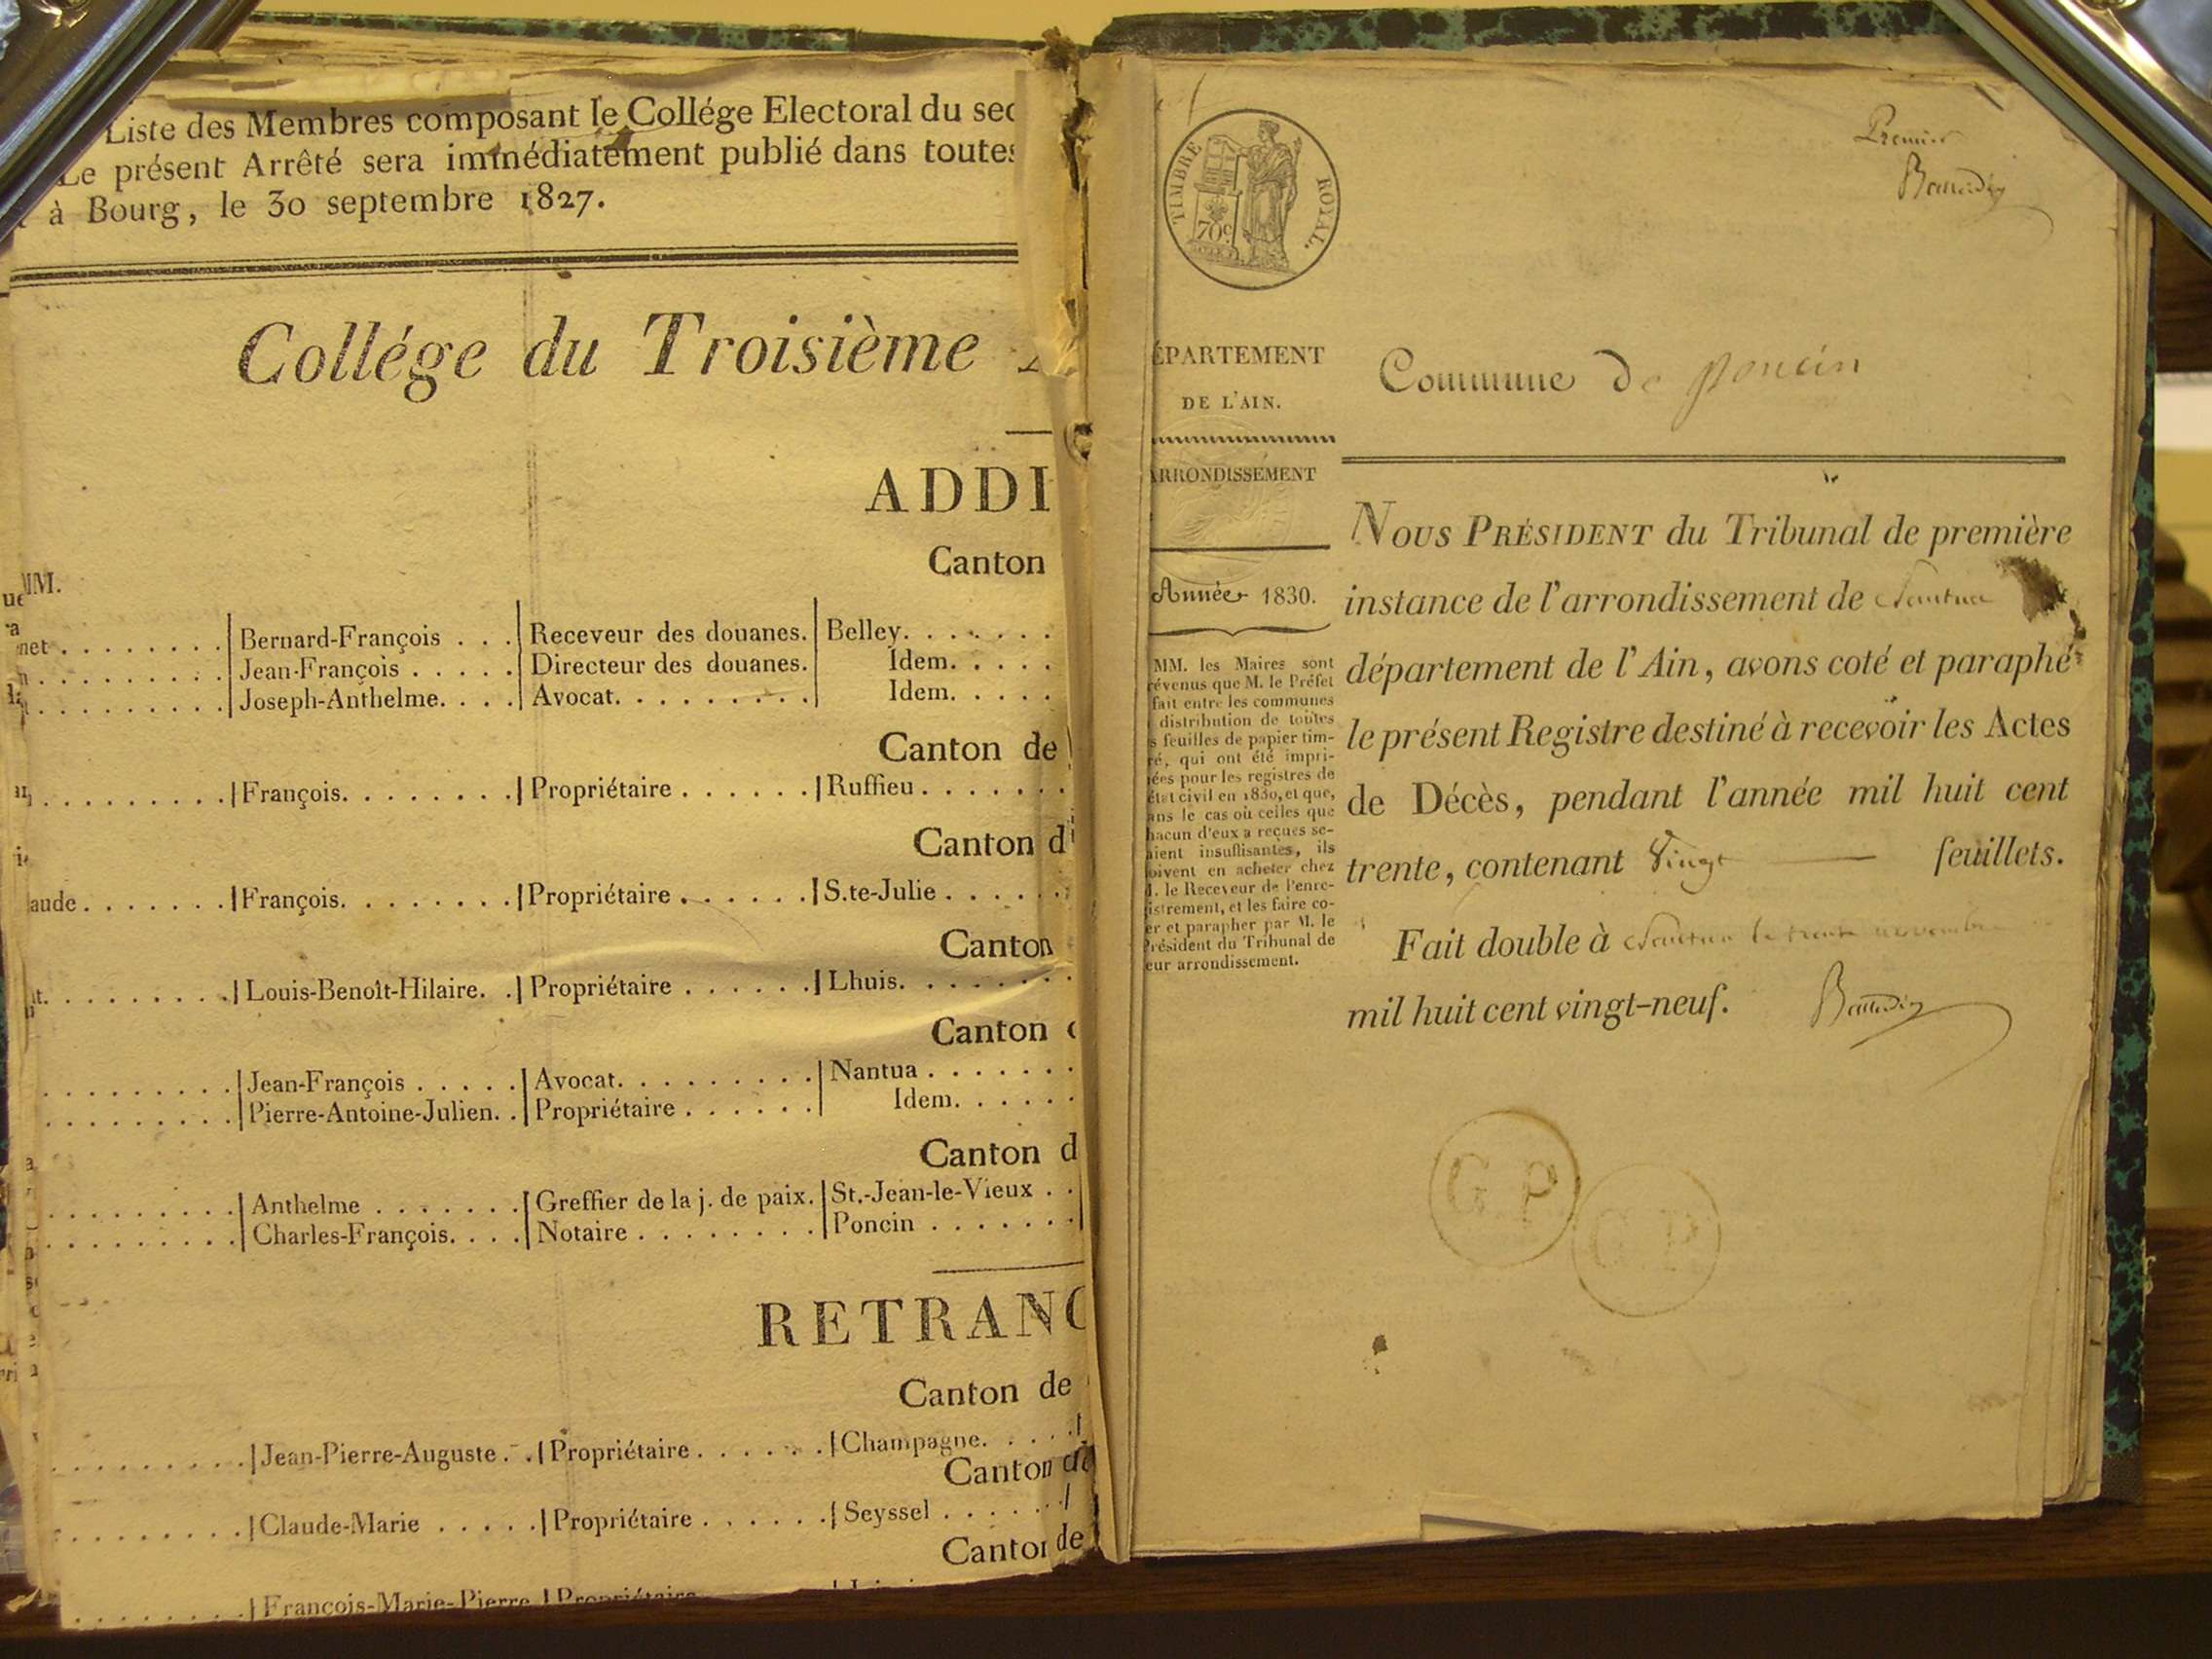 Liste des Membres composant le Collége Electoral du
Le présent Arrêté sera immédiatement publié dans toutes
à Bourg, le 30 septembre 1827.
Collége du Troisième
ADDI
Canton
MM.
Bernard-François . . . Receveur des douanes. Belley. . . . . . .
Jean-François . . . . . Directeur des douanes. Idem. . . . .
Joseph-Anthelme. . . . Avocat. . . . . . . . . Idem. . . . .
Canton de
François. . . . . . . . Propriétaire . . . . . . Ruffieu . . . . . . .
Canton
aude . . . . . . . François. . . . . . . . Propriétaire . . . . . . S.te-Julie . . . . . .
Canton
Louis-Benoît-Hilaire. . Propriétaire . . . . . . Lhuis. . . . . . . .
Canton
Jean-François . . . . . Avocat. . . . . . . . . Nantua . . . . . . .
Pierre-Antoine-Julien. . Propriétaire . . . . . . Idem. . . . . .
Canton
Anthelme . . . . . . . Greffier de la j. de paix. St.-Jean-le-Vieux . .
Charles-François. . . . Notaire . . . . . . . . Poncin . . . . . . .
RETRANC
Canton de
Jean-Pierre-Auguste . . Propriétaire . . . . . . Champagne. . . . .
Canton de
Claude-Marie . . . . . Propriétaire . . . . . . Seyssel . . . . . .
Canton de
François-Marie-Pierre Propriétaire
TIMBRE ROYAL.
70c
Premier
ÉPARTEMENT
DE L'AIN.
Commune de poncin
RRONDISSEMENT
Année 1830.
MM. les Maires sont
révenus que M. le Préfet
fait entre les communes
distribution de toutes
s feuilles de papier tim-
ré, qui ont été impri-
ées pour les registres de
état civil en 1830, et que,
ans le cas où celles que
hacun d'eux a reçues se-
aient insuffisantes, ils
oivent en acheter chez
. le Receveur de l'enre-
istrement, et les faire co-
er et parapher par M. le
Président du Tribunal de
eur arrondissement.
NOUS PRÉSIDENT du Tribunal de première
instance de l'arrondissement de Nantua
département de l'Ain, avons coté et paraphé
le présent Registre destiné à recevoir les Actes
de Décès, pendant l'année mil huit cent
trente, contenant Vingt feuillets.
Fait double à Nantua le trente novembre
mil huit cent vingt-neuf.
G P
G P